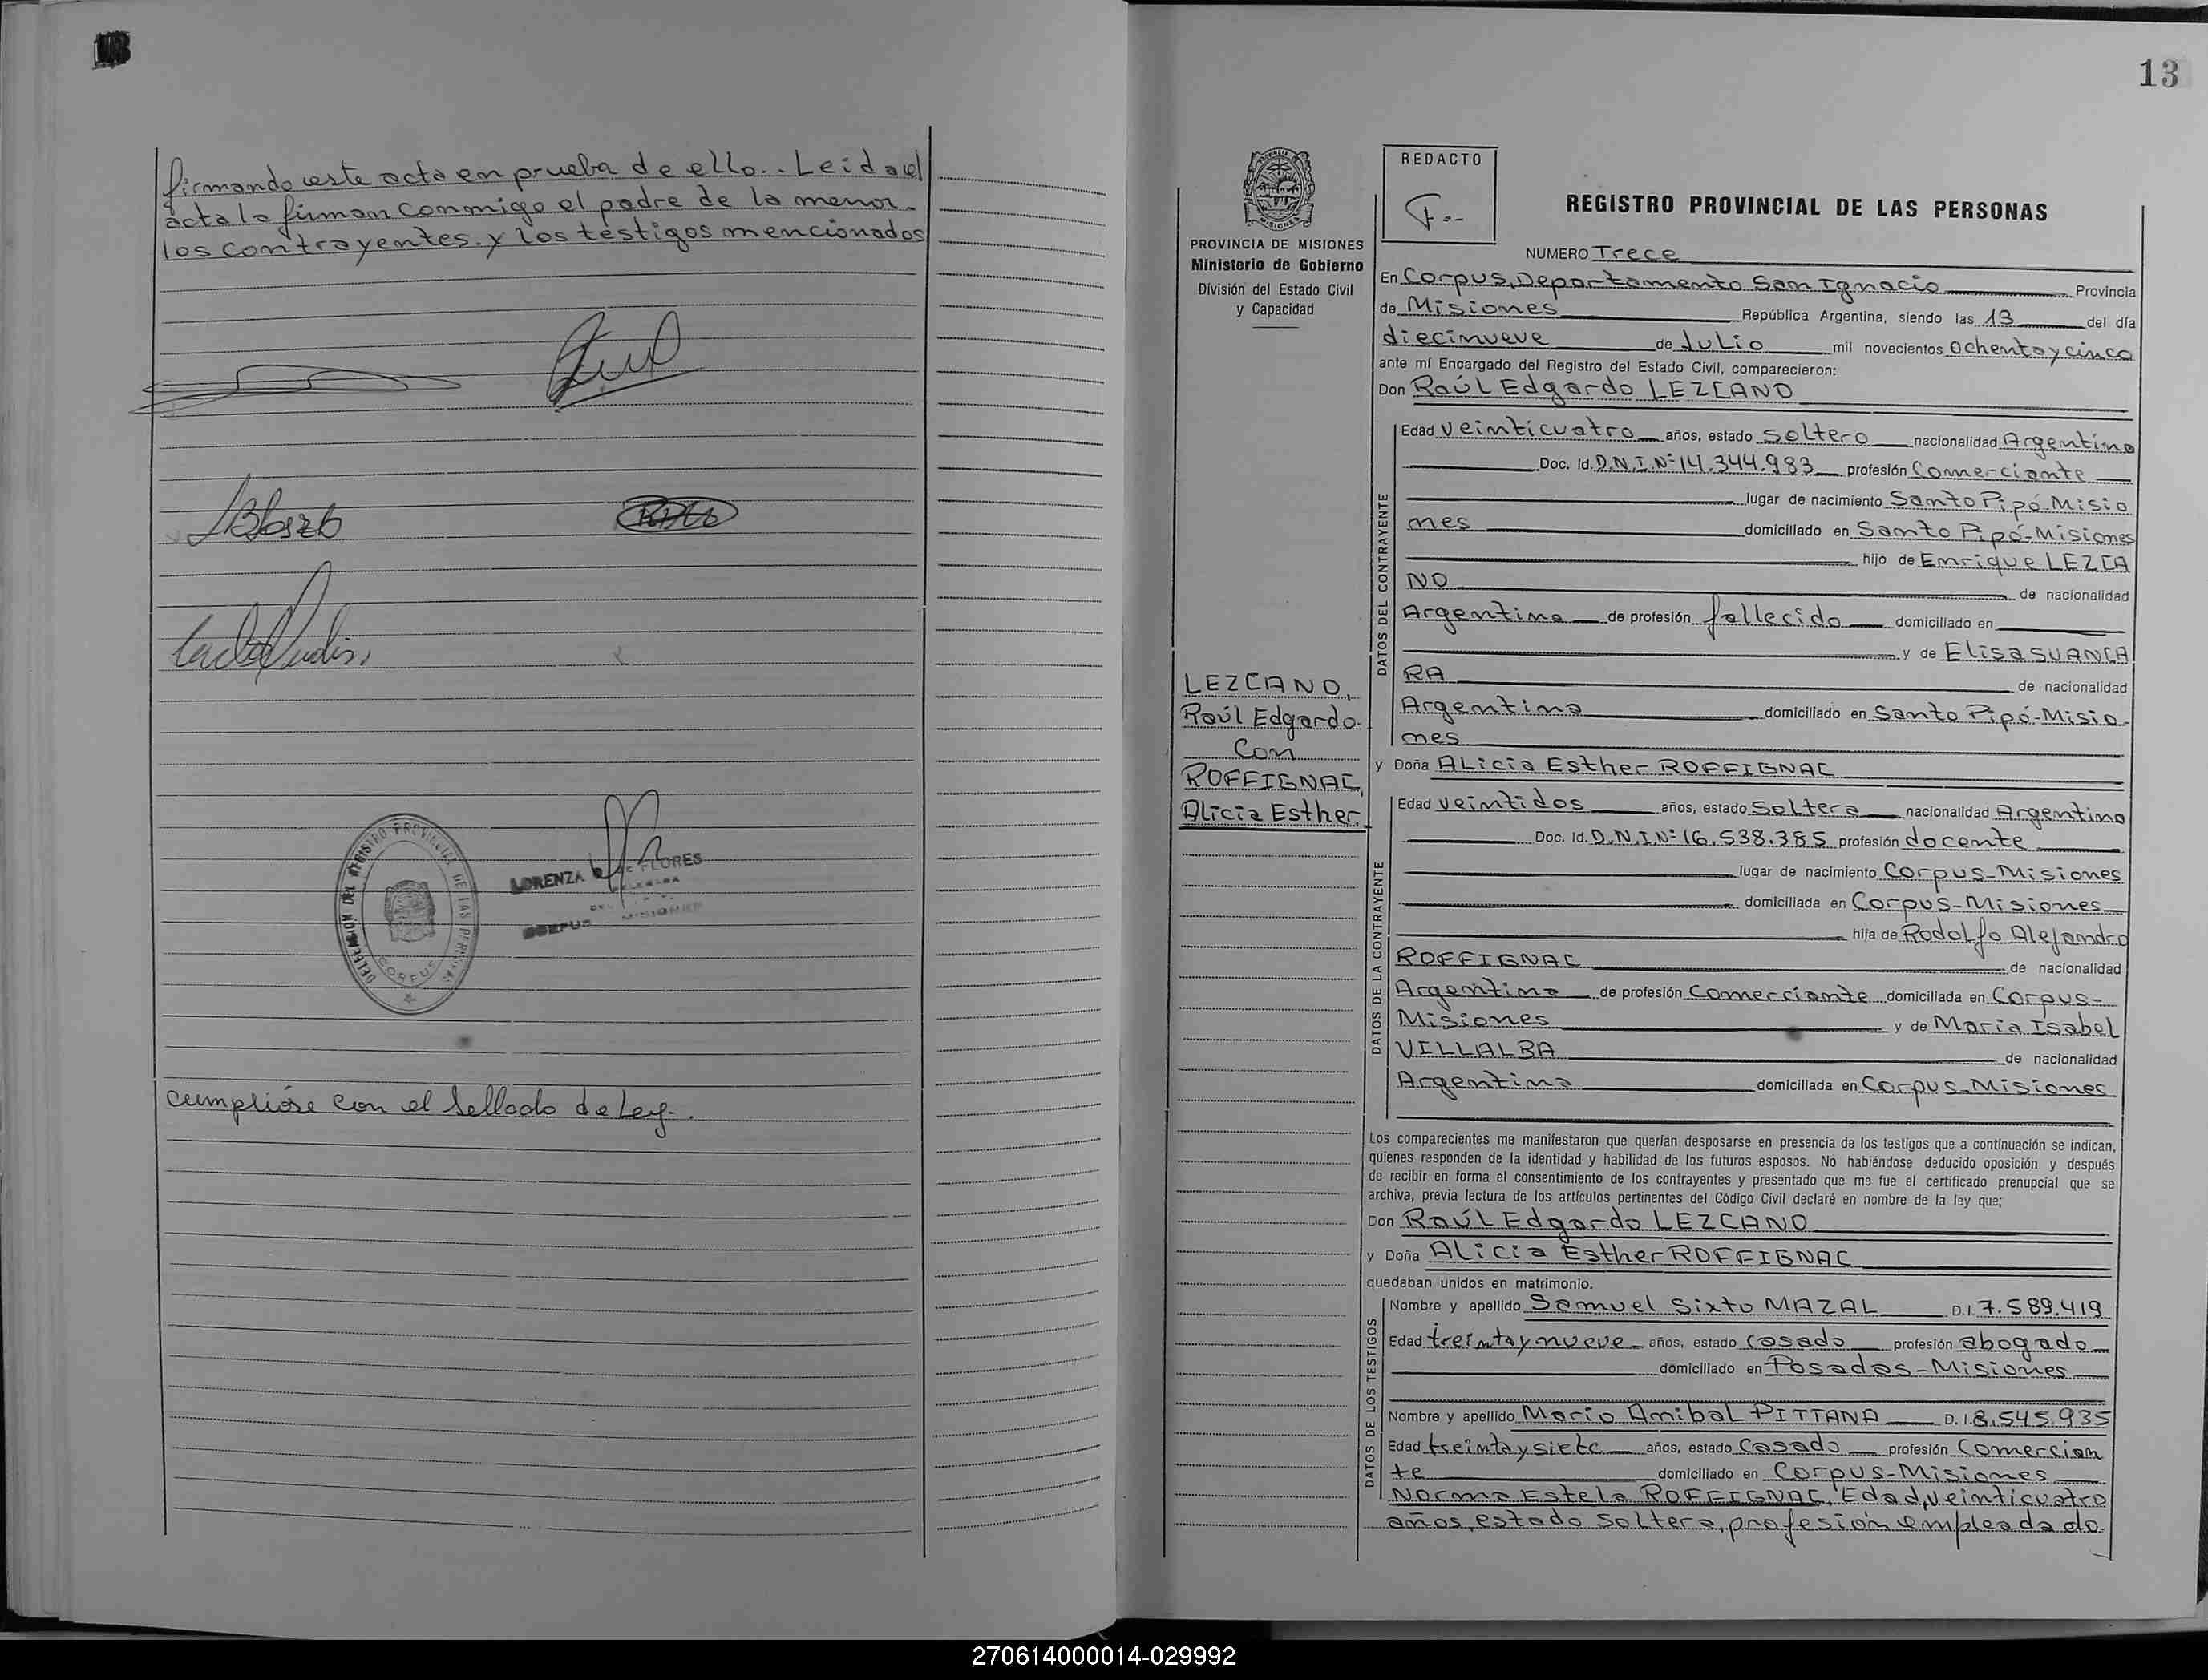 firmando este acta en prueba de ello.. Leida el
acta la firman conmigo el padre de la menor.
los contrayentes. y los testigos mencionados
DELEGACION DEL REGISTRO PROVINCIAL DE LAS PERSONAS
CORPUS
LORENZA FLORES
DELEGADA
CORPUS MISIONES
cumplióse con el sellado de Ley.
13
PROVINCIA DE MISIONES
Ministerio de Gobierno
División del Estado Civil
y Capacidad
LEZCANO,
Raúl Edgardo.
Con
ROFFIGNAC,
Alicia Esther.
REDACTO
REGISTRO PROVINCIAL DE LAS PERSONAS
NUMERO Trece
En Corpus, Departamento San Ignacio Provincia
de Misiones República Argentina, siendo las 13 del día
diecinueve de Julio mil novecientos ochenta y cinco
ante mí Encargado del Registro del Estado Civil, comparecieron:
Don Raúl Edgardo LEZCANO
DATOS DEL CONTRAYENTE
Edad veinticuatro años, estado soltero nacionalidad Argentina
Doc. Id. D.N.I.Nº 14.344.983 profesión Comerciante
lugar de nacimiento Santo Pipó-Misio
nes domiciliado en Santo Pipó-Misiones
hijo de Enrique LEZCA
NO de nacionalidad
Argentina de profesión fallecido domiciliado en
y de Elisa SUANCA
RA de nacionalidad
Argentina domiciliado en Santo Pipó-Misio
nes
y Doña Alicia Esther ROFFIGNAC
DATOS DE LA CONTRAYENTE
Edad veintidos años, estado Soltera nacionalidad Argentina
Doc. Id. D.N.I.Nº 16.538.385 profesión docente
lugar de nacimiento Corpus-Misiones
domiciliada en Corpus-Misiones
hija de Rodolfo Alejandro
ROFFIGNAC de nacionalidad
Argentina de profesión Comerciante domiciliada en Corpus-
Misiones y de María Isabel
VILLALBA de nacionalidad
Argentina domiciliada en Corpus-Misiones
Los comparecientes me manifestaron que querían desposarse en presencia de los testigos que a continuación se indican,
quienes responden de la identidad y habilidad de los futuros esposos. No habiéndose deducido oposición y después
de recibir en forma el consentimiento de los contrayentes y presentado que me fue el certificado prenupcial que se
archiva, previa lectura de los artículos pertinentes del Código Civil declaré en nombre de la ley que;
Don Raúl Edgardo LEZCANO
y Doña Alicia Esther ROFFIGNAC
quedaban unidos en matrimonio.
DATOS DE LOS TESTIGOS
Nombre y apellido Samuel Sixto MAZAL D.I 7.589.419
Edad treinta y nueve años, estado casado profesión abogado
domiciliado en Posadas-Misiones
Nombre y apellido Mario Anibal PITTANA D. I. 8.545.935
Edad treinta y siete años, estado Casado profesión Comercian
te domiciliado en Corpus-Misiones
Norma Estela ROFFIGNAC, Edad, veinticuatro
años, estado soltera, profesión empleada do.
270614000014-029992